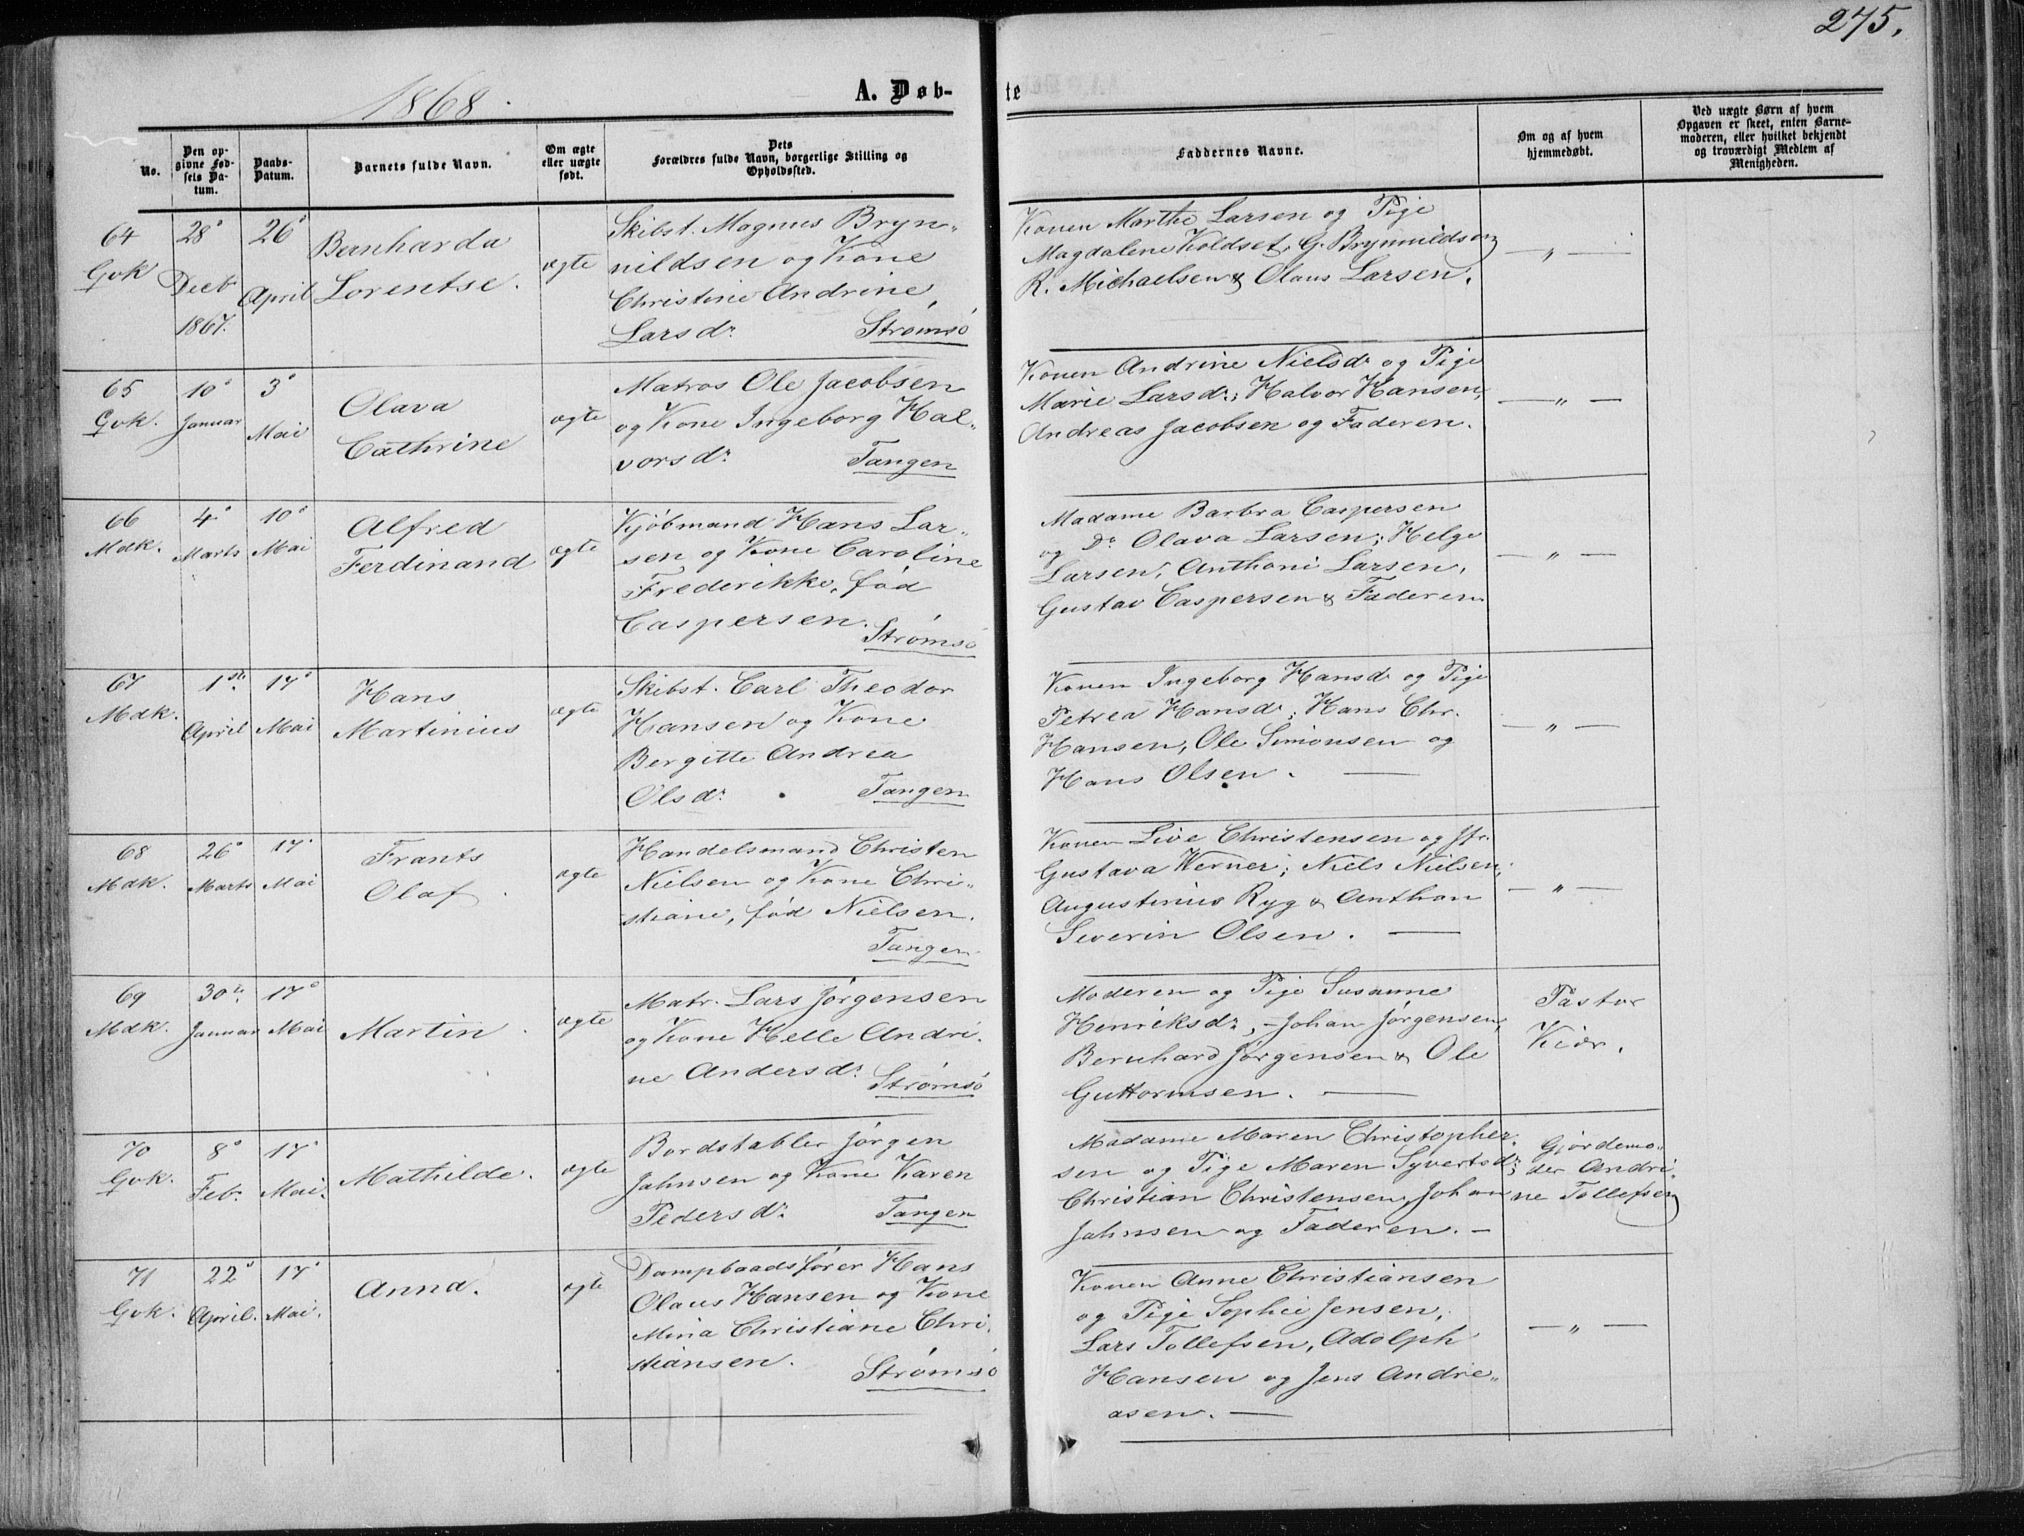 275.
1868.
A. Døb-
te
No.
Den op-
givne Fød-
sels Da-
tum.
Daabs-
Datum.
Barnets fulde Navn.
Om ægte
eller uægte
født.
Dets
Forældres fulde Navn, borgerlige Stilling og
Opholdssted.
Faddernes Navne.
Om og af hvem
hjemmedøbt.
Ved uægte Børn af hvem
Opgaven er skeet, enten Barne-
moderen, eller hvilket bekjendt
og troværdigt Medlem af
Menigheden.
64
Gvk
28de
Decbr
1867.
26de
April
Banharda
Lorentse.
ægte
Skibst. Magnus Bryn-
nildsen og Kone
Christine Andrine
Larsdr. Strømsø
Konen Marthe Larsen og Pige
Magdalene Koldset, G. Brynnildsen
R. Michaelsen & Olaus Larsen.
— „ —
65
Gvk.
10de
Januar
3de
Mai
Olava
Cathrine
ægte
Matros Ole Jacobsen
og Kone Ingeborg Hal-
vorsdr. Tangen
Konen Andrine Nielsdr og Pige
Marie Larsdr; Halvor Hansen,
Andreas Jacobsen og Faderen.
— „ —
66
Mdk.
4de
Marts
10de
Mai
Alfred
Ferdinand
ægte
Kjøbmand Hans Lar-
sen og Kone Caroline
Frederikke, fød
Caspersen. Strømsø
Madame Barbra Caspersen
og Do Olava Larsen; Helge
Larsen, Anthoni Larsen,
Gustav Caspersen & Faderen
— „ —
67
Mdk.
1ste
April
17de
Mai
Hans
Martinius
ægte
Skibst. Carl Theodor
Hansen og Kone
Bergitte Andrea
Olsdr. Tangen
Konen Ingeborg Hansdr og Pige
Petrea Hansdr; Hans Chr.
Hansen, Ole Simonsen og
Hans Olsen. —
— „ —
68
Mdk.
26de
Marts
17de
Mai
Frants
Olaf.
ægte
Handelsmand Christen
Nielsen og Kone Chri-
stiane, fød Nielsen.
Tangen
Konen Live Christensen og Jfr.
Gustava Werner; Niels Nielsen,
Augustinius Ryg & Anthon
Severin Olsen. —
— „ —
69
Mdk.
30te
Januar
17de
Mai
Martin.
ægte
Matr. Lars Jørgensen
og Kone Helle Andri-
ne Andersdr. Strømsø
Moderen og Pige Susanne
Henriksdr, – Johan Jørgensen,
Bernhard Jørgensen & Ole
Guttormsen. —
Pastor
Kiær.
70
Gvk.
8de
Febr.
17de
Mai.
Mathilde.
ægte
Bordstabler Jørgen
Jahnsen og Kone Karen
Pedersdr. Tangen
Madame Maren Christopher-
sen og Pige Maren Syvertsdr;
Christian Christensen, Johan
Jahnsen og Faderen. –
Gjordemo-
der Andri-
ne Tollefsen
71
Gvk.
22de
April.
17de
Mai.
Anna.
ægte
Dampbaadsfører Hans
Olaus Hansen og Kone
Mina Christiane Chri-
stiansen. Strømsø
Konen Anne Christiansen
og Pige Sophie Jensen,
Lars Tollefsen, Adolph
Hansen og Jens Andre-
asen. —
— „ —